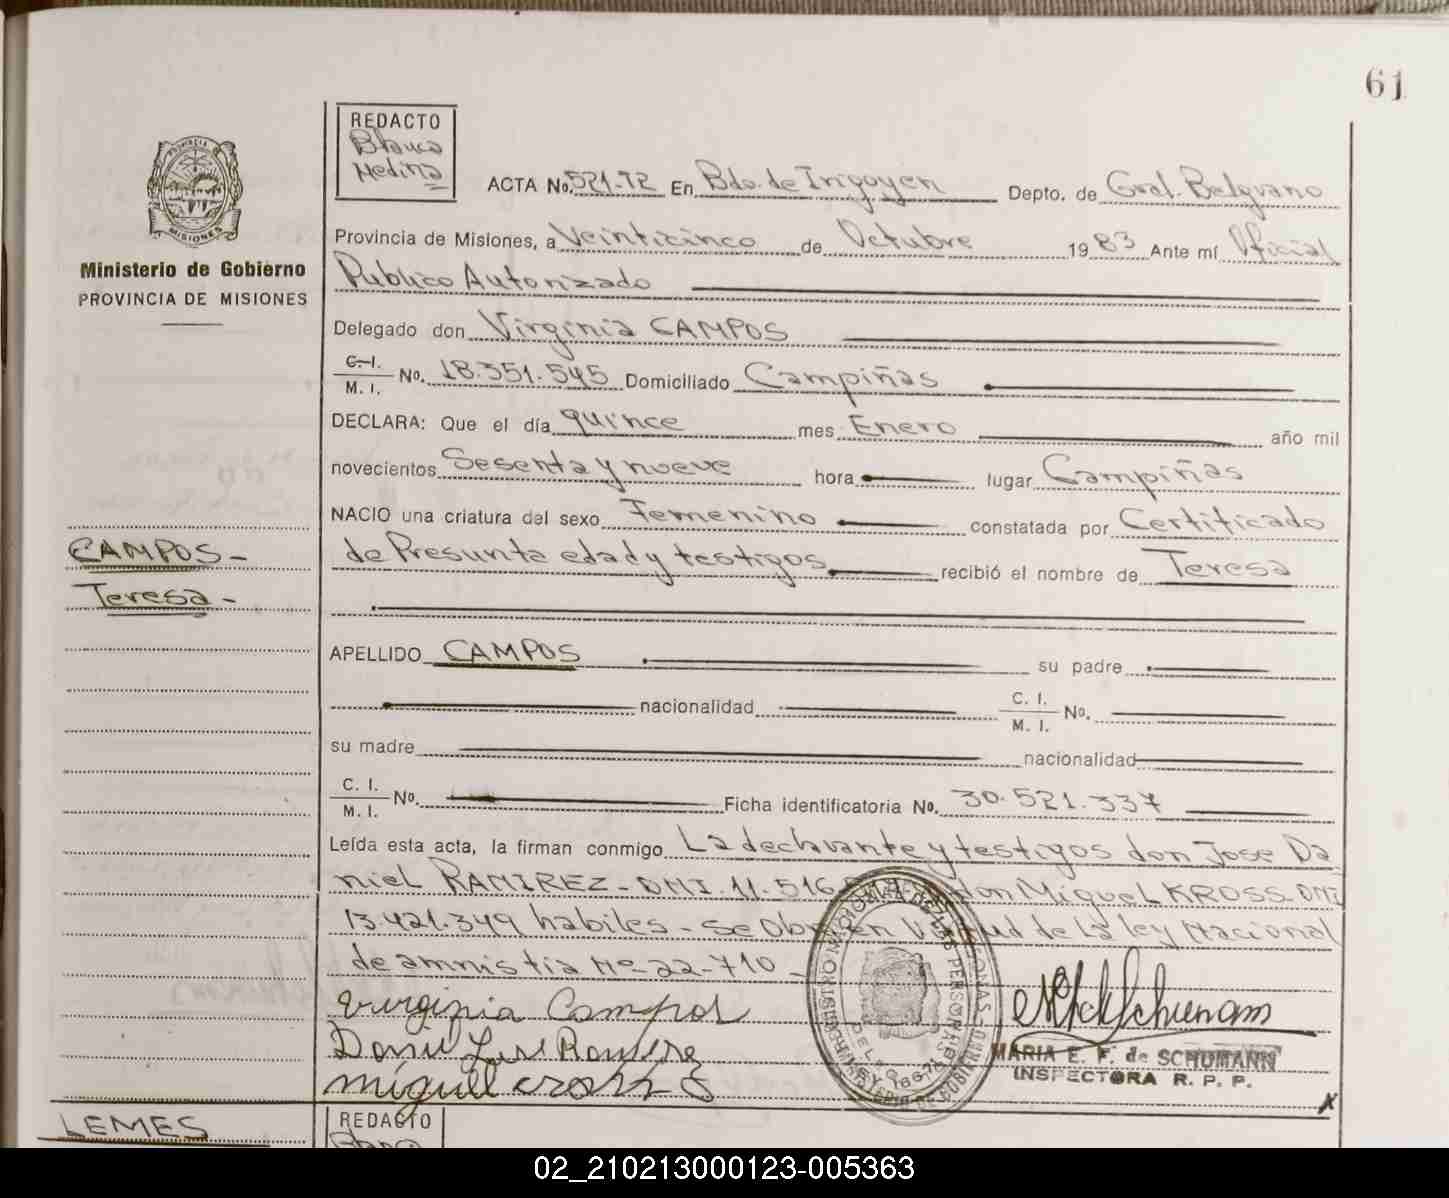 61
REDACTO
Blanca
Medina
ACTA No. 521-T2 En Bdo. de Irigoyen Depto. de Gral. Belgrano
PROVINCIA DE
MISIONES
Ministerio de Gobierno
PROVINCIA DE MISIONES
Provincia de Misiones, a Veinticinco de Octubre 1983 Ante mí Oficial
Publico Autorizado
Delegado don Virginia CAMPOS
C. I.
M. I. No. 18.351.545 Domiciliado Campiñas
DECLARA: Que el día quince mes Enero año mil
novecientos Sesenta y nueve hora lugar Campiñas
NACIO una criatura del sexo Femenino constatada por Certificado
CAMPOS-
Teresa-
de Presunta edad y testigos recibió el nombre de Teresa
APELLIDO CAMPOS su padre
nacionalidad C. I.
M. I. No.
su madre nacionalidad
C. I.
M. I. No. Ficha identificatoria No. 30.521.337
Leída esta acta, la firman conmigo La declarante y testigos don Jose Da
niel RAMIREZ-DMI. 11.516 don Miguel KROSS-DMI
13.421.349 habiles-se Obr en Virtud de la ley Nacional
de amnistia Nº 22-710-
Virginia Campos
MARIA E. F. de SCHUMANN
INSPECTORA R. P. P.
LEMES
REDACTO
02_210213000123-005363